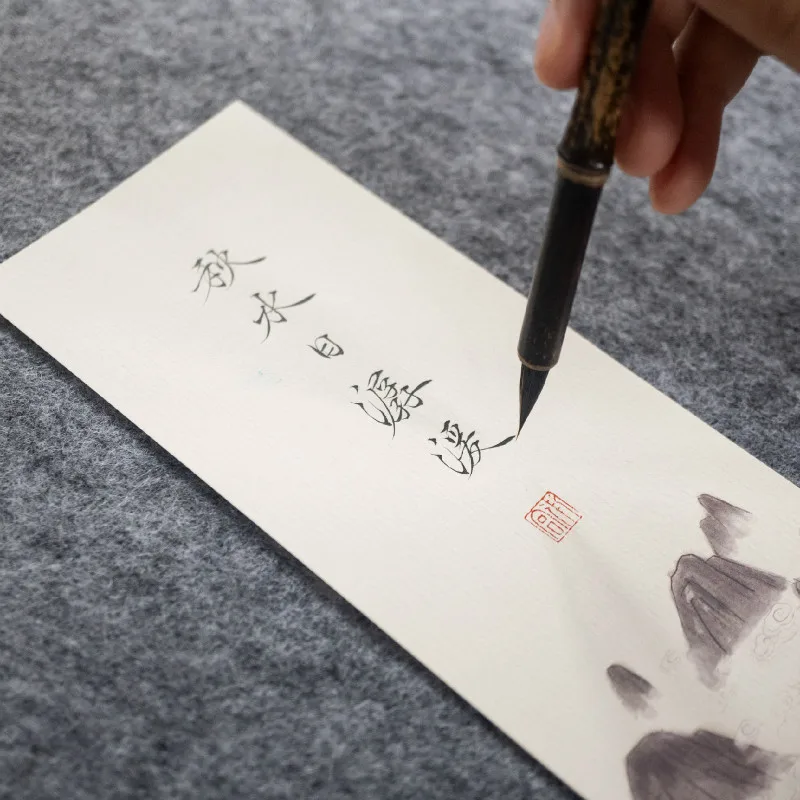 秋水日潺湲